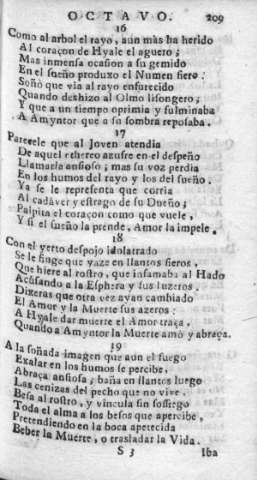 OCTAVO. 209
16
Como al arbol el rayo, aun màs ha herido
Al coraçon de Hyale el aguero;
Mas inmensa ocasion a su gemido
En el sueño produxo el Numen fiero:
Soñò que via al rayo enfurecido
Quando deshizo al Olmo lisongero;
Y que a un tiempo oprimia y fulminaba
A Amyntor que a su sombra reposaba.
17
Parecele que al Joven atendia
De aquel ethereo azufre en el despeño
Llamarla ansioso; mas su voz perdia
En los humos del rayo y los del sueño.
Ya se le representa que corria
Al cadáver y estrago de su Dueño;
Palpita el coraçon como que vuele,
Y si el sueño la prende, Amor la impele.
18
Con el yerto despojo idolatrado
Se le finge que yaze en llantos fieros,
Que hiere al rostro, que infamaba al Hado
Acusando a la Esphera y sus luzeros.
Dixeras que otra vez ayan cambiado
El Amor y la Muerte sus azeros:
A Hyale dar muerte el Amor traça,
Quando a Amyntor la Muerte amò y abraça.
19
A la soñada imagen que aun el fuego
Exalar en los humos se percibe,
Abraça ansiosa; baña en llantos luego
Las cenizas del pecho que no vive.
Besa al rostro, y vincula sin sossiego
Toda el alma a los besos que apercibe,
Pretendiendo en la boca apetecida
Beber la Muerte, o trasladar la Vida.
S 3 Iba